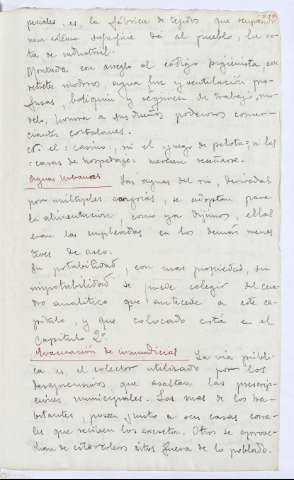 peciales, es, la fábrica de tejidos que ocupando
una extensa superficie dá al pueblo, la no-
ta de industrial.
Montada con arreglo al código higienista en
retrete modernos, agua fina y ventilación pro-
fusas, botiquin y régimen de trabajo, mo-
delo, honra a sus dueños poderosos comer-
ciantes catalanes.
el casino, ni el juego de pelota, ni las
casas de hospedaje merecen reseñarse.
Aguas urbanas Las aguas del rio, derivadas
por multiples sangrias, se adoptan para
la alimentación, como ya dijimos, ellas
eran las empleadas en los demás menes
teres de aseo.
Su potabilidad, con mas propiedad, su
impotabilidad se puede colegir del cua
dro analitico que antecede a este ca
pitulo, y que colocado está en el
Capitulo 2º.
Evacuación de inmundicias La via públi-
ca es, el colector utilizado por los
desaprensivos que asaltan las prescrip-
ciones municipales. Los mas de los ha-
bitantes, poseen junto a sus casas corra-
les que reciben las excretas. Otros se aprove-
chan de estercoleros sitos fuera de lo poblado.